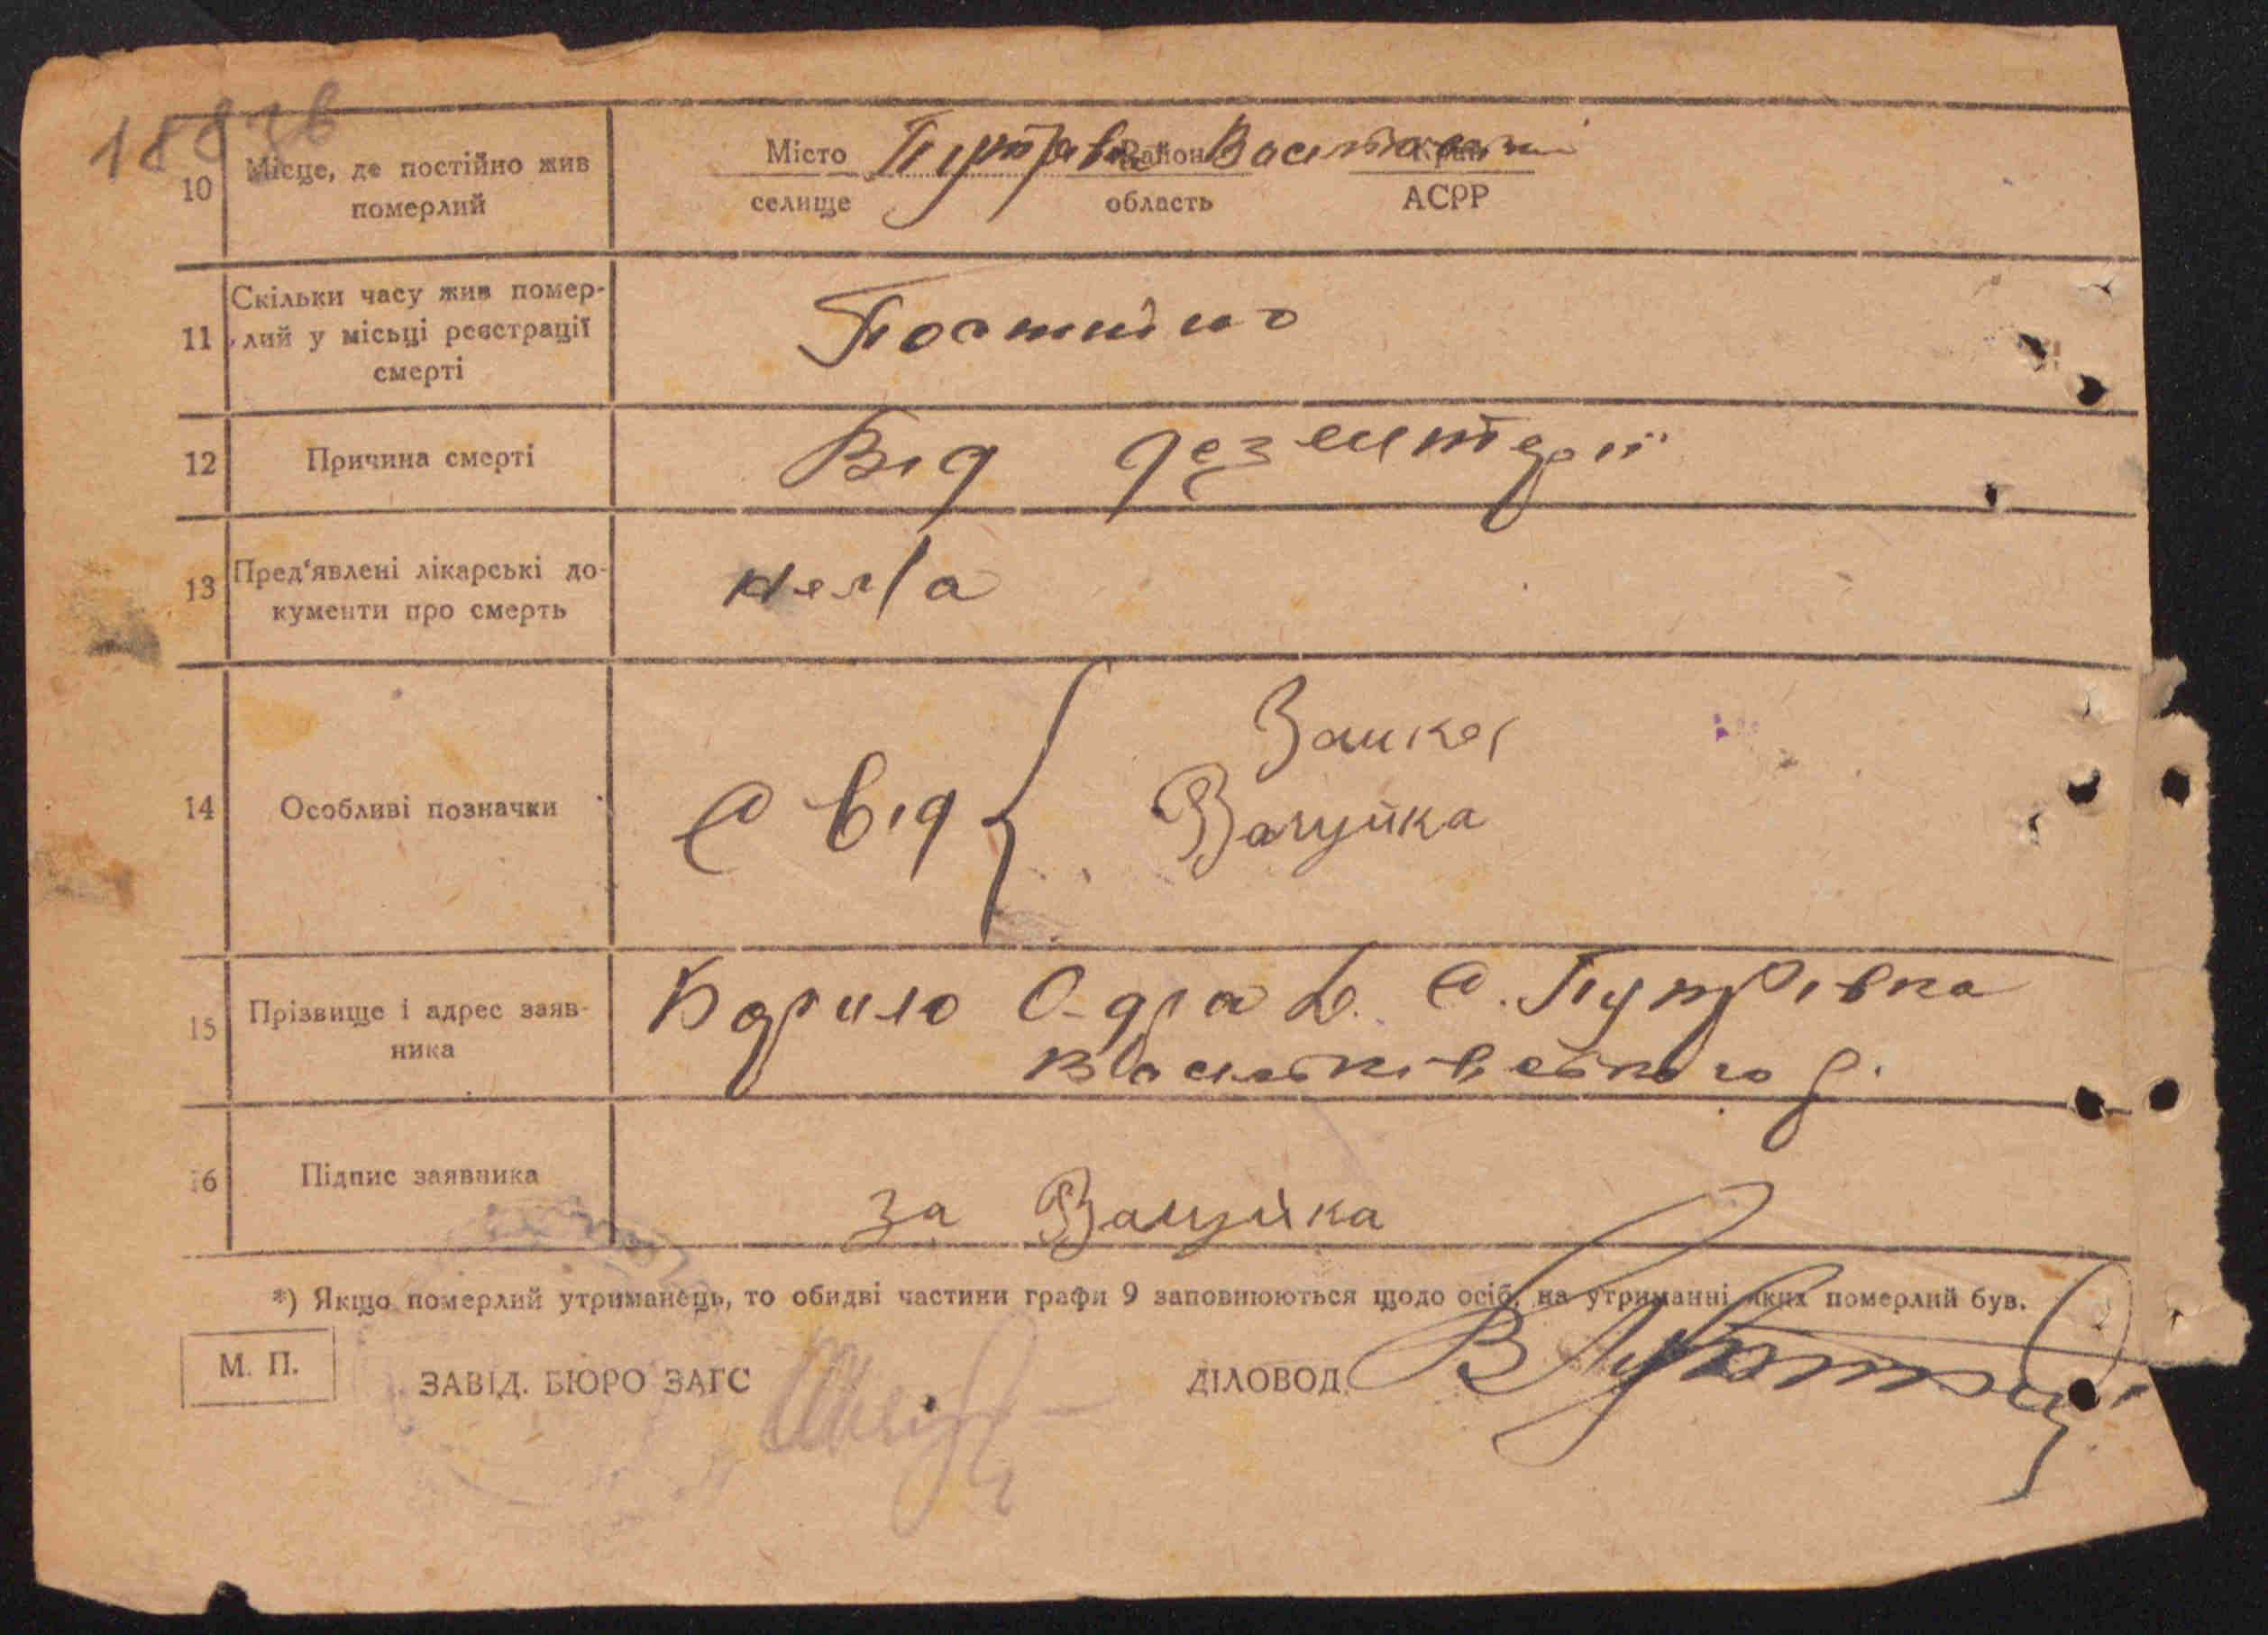 10 Місце, де постійно жив Місто Путрівка Район Васильківський
померлий селище область АСРР
Скільки часу жив помер-
11 лий у місьці реєстрації Постійно
смерті
12 Причина смерті Від дезентерії
13 Пред'явлені лікарські до- Нема
кументи про смерть
Заика
14 Особливі позначки Свід { Валуйка
15 Прізвище і адрес заяв- С. Путрівка
ника Васильківського р.
16 Підпис заявника за Валуйка
*) Якщо померлий утриманець, то обидві частини графи 9 заповнюються щодо осіб, на утриманні яких померлий був.
М. П. ЗАВІД. БЮРО ЗАГС ДІЛОВОД